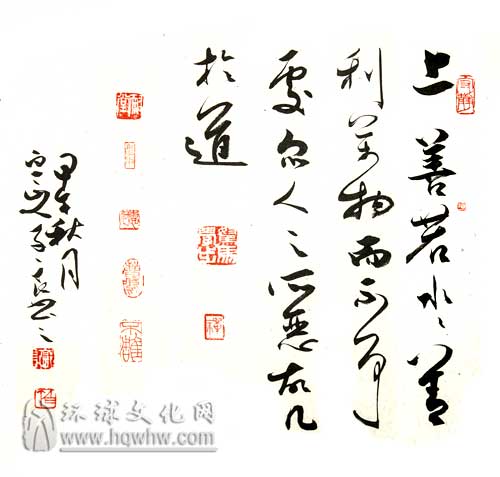 上善若水〻善
利萬物而不爭
處众人之所惡故几
於道
甲午秋月
环球文化网
www.hqwhw.com